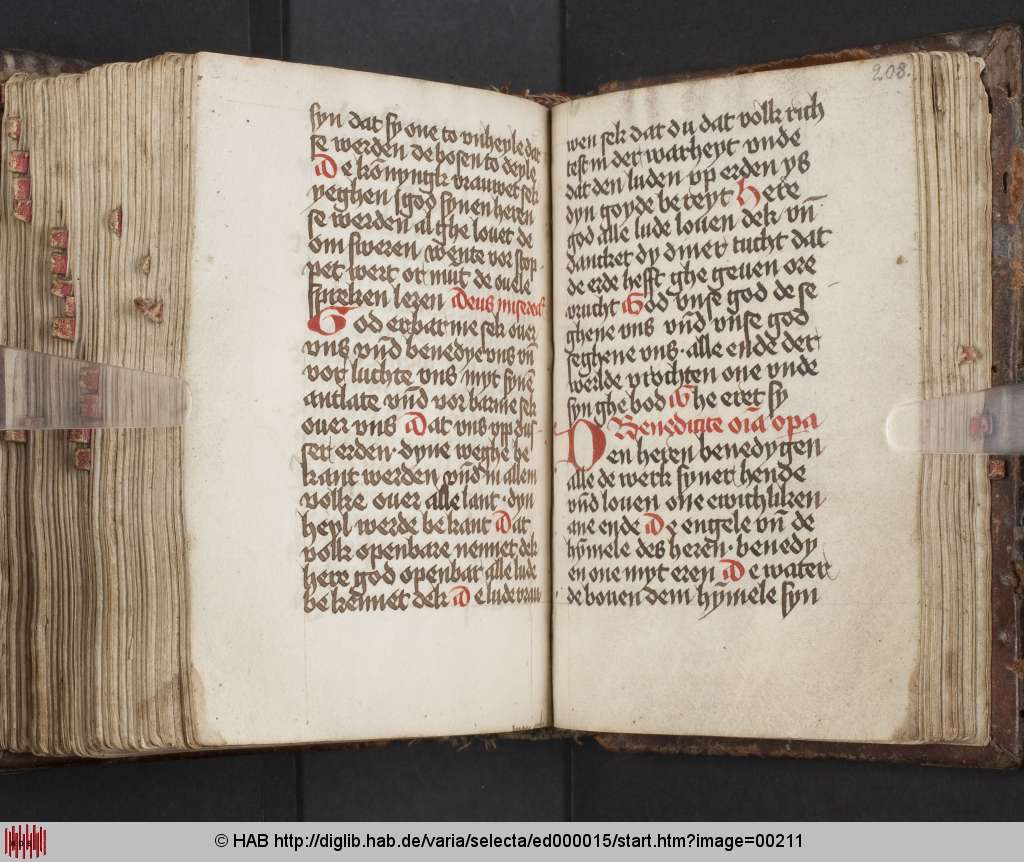 syn dat sy one to vnheyle dat
se werden de bosen to deyle
De kōnyngk vrauwet sek
yeghen god synen heren
se werden al ghelouet de
om sweren / wente vorstop
pet wert or mut de ouele
spreken leren Deus misereatur
God erbarme sek ouer
vns vnd benedye vns vn̄
vorluchte vns myt synē
antlate vnd vorbarme sek
ouer vns Dat vns vpp dus
ser erden · dyne weghe be
kant werden vnd in allem
volke ouer alle lant · dyn
heyl werde bekant Dat
volk openbare nennet dek
here god openbar alle lude
bekennet dek De lude vrau
208.
wen sek dat du dat volk rich
test in der warheyt vnde
dat den luden vp erden ys
dyn goyde bereyt Here
god alle lude louen dek vn̄
dancket dy dyner tucht dat
de erde hefft ghegeuen ore
vrucht God vnse god de se
ghene vns vnd vnse god
seghene vns · alle ende der
werlde vrochten one vnde
syn ghebod Gheeret sy
Benedicite oīa opa
Den heren benedygen
alle de werk syner hende
vnd louen one ewichliken
ane ende De engele vn̄ de
hȳmele des heren · benedy
en one myt eren De water
de bouen dem hȳmele syn
© HAB http://diglib.hab.de/varia/selecta/ed000015/start.htm?image=00211